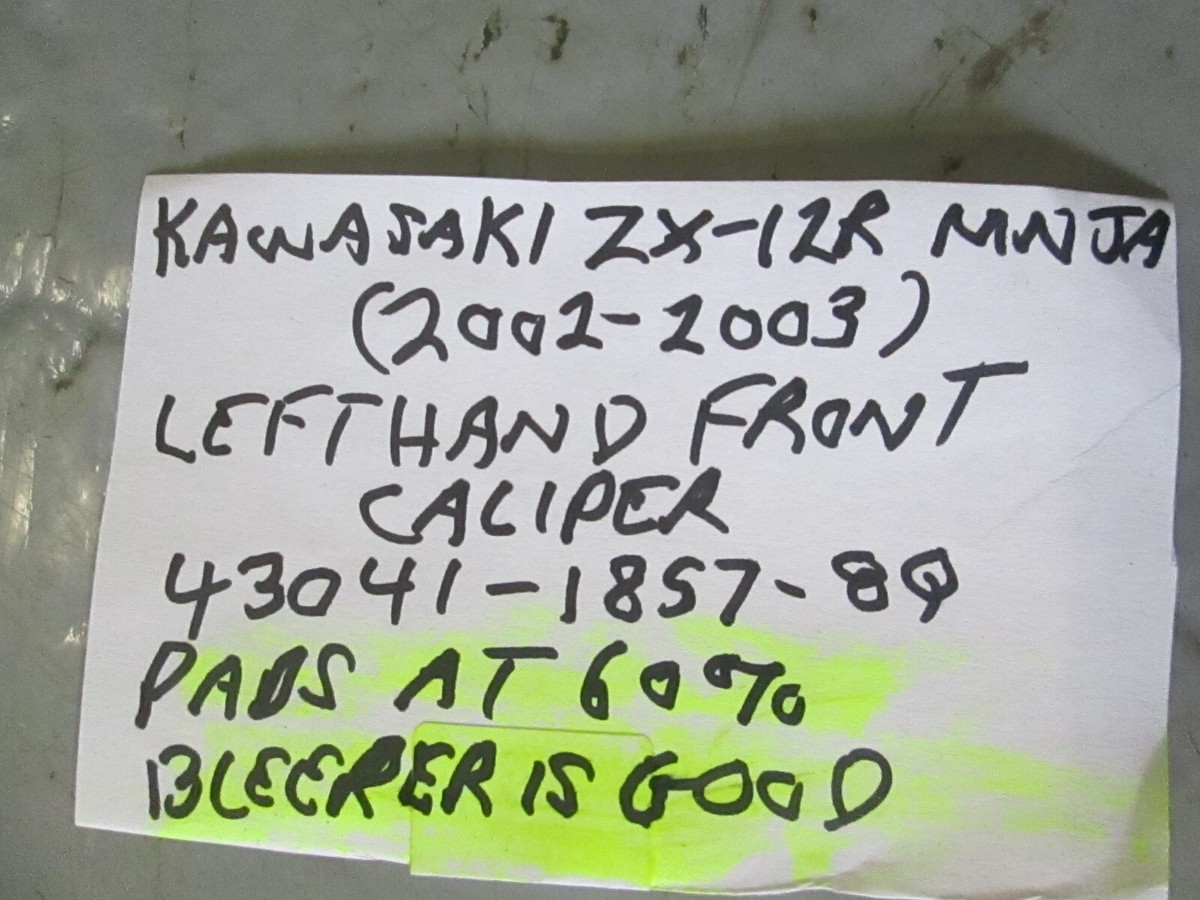 KAWASAKI ZX-12R NINJA
(2002-2003)
LEFT HAND FRONT
CALIPER
43041-1857-8Q
PADS AT 60%
BLEEPER IS GOOD